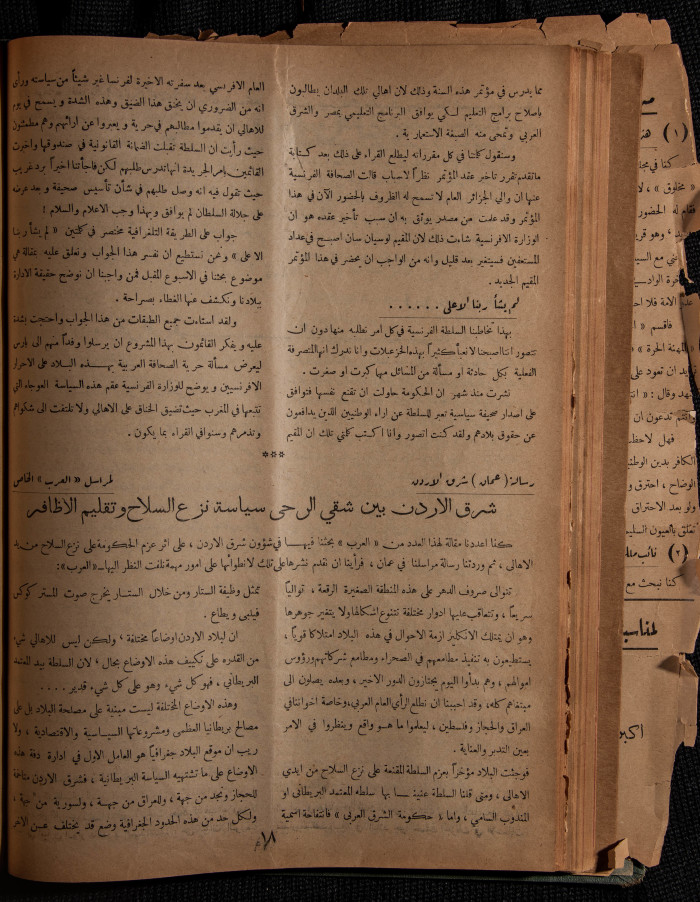 مما يدرس في مؤتمر هذه السنة وذلك لان اهالي تلك البلدان يطالبون
باصلاح برامج التعليم لكي يوافق البرنامج التعليمي بمصر والشرق
العربي وتمحى منه الصبغة الاستعمارية .
وسنقول كلمتنا في كل مقرراته ليطلع القراء على ذلك بعد كتابة
ماتقدم تقرر تأخير عقد المؤتمر نظراً لاسباب قالت الصحافة الفرنسية
عنها ان والي الجزائر العام لا تسمح له الظروف بالحضور الآن في هذا
المؤتمر وقد علمت من مصدر يوثق به ان سبب تأخير عقده هو ان
الوزارة الافرنسية شاءت ذلك لان المقيم لوسيان سان اصبح في عداد
المستعفين فسيتغير بعد قليل وانه من الواجب ان يحضر في هذا المؤتمر
المقيم الجديد .
لم يشأ ربنا الاعلى . . . . . .
بهذا تخاطبنا السلطة الفرنسية في كل امر نطلبه منها دون ان
تتصور اننا اصبحنا لا نعبأ كثيراً بهذه الخزعبلات واننا ندرك انها المتصرفة
الفعلية بكل حادثة او مسألة من المسائل مهما كبرت او صغرت .
نشرت منذ شهر ان الحكومة حاولت ان تقنع نفسها فتوافق
على اصدار صحيفة سياسية تعبر للسلطة عن اراء الوطنيين الذين يدافعون
عن حقوق بلادهم ولقد كنت اتصور وانا اكتب كلمتي تلك ان المقيم
العام الافرنسي بعد سفرته الاخيرة لفرنسا غير شيئاً من سياسته ورأى
انه من الضروري ان يخفق هذا الضيق وهذه الشدة و يسمح في يوم
للاهالي ان يقدموا مطالبهم في حرية و يعبروا عن ارائهم وهم مطمئنون
حيث رأيت ان السلطة تقبلت الضمانة القانونية في صندوقها واخبرت
القائمين بامر الجريدة انها تدرس طلبهم لكن فاجأتنا اخيراً برد غريب
حيث تقول فيه انه وصل طلبهم في شأن تأسيس صحيفة و بعد عرضه
على جلالة السلطان لم يوافق وبهذا وجب الاعلام والسلام !
جواب على الطريقة التلغرافية مختصر في كلمتين « لم يشأ ربنا
الاعلى » ونحن نستطيع ان نفسر هذا الجواب ونعلق عليه بمقالة هي
موضوع بحثنا في الاسبوع المقبل فمن واجبنا ان نوضح حقيقة الادارة
ببلادنا ونكشف عنها الغطاء بصراحة .
ولقد استاءت جميع الطبقات من هذا الجواب واحتجت بشدة
عليه و يفكر القائمون بهذا المشروع ان يرسلوا وفداً منهم الى باريس
ليعرض مسألة حرية الصحافة العربية بهذه البلاد على الاحرار
الافرنسيين و يوضح للوزارة الفرنسية عقم هذه السياسة العوجاء التي
تتبعها في المغرب حيث تضيق الخناق على الاهالي ولا تلتفت الى شكواهم
وتذمرهم وسنوافي القراء بما يكون .
***
رسالة ( عمان ) شرق الاردن
لمراسل « العرب » الخاص
شرق الاردن بين شقي الرحى سياسة نزع السلاح وتقليم الاظافر
كنا اعددنا مقالة لهذا العدد من « العرب » بحثنا فيها في شؤون شرق الاردن ، على اثر عزم الحكومة على نزع السلاح من يد
الاهالي ، ثم وردتنا رسالة مراسلنا في عمان ، فرأينا ان نقدم نشرها على تلك لانطوائها على امور مهمة نلفت النظر اليها ــ « العرب » :
تتوالى صروف الدهر على هذه المنطقة الصغيرة الرقعة ، توالياً
سريعاً ، وتتعاقب عليها ادوار مختلفة تتنوع اشكالها ولا يتغير جوهرها
وهو ان يمتلك الانكليز ازمة الاحوال في هذه البلاد امتلاكا قوياً ،
يستطيعون به تنفيذ مطامعهم في الصحراء ومطامع شركاتهم ورؤوس
اموالهم ، وهم بدأوا اليوم يجتازون الدور الاخير ، وبعده يصلون الى
مبتغاهم كله ، وقد احببنا ان نطلع الرأي العام العربي ، وخاصة اخواننا في
العراق والحجاز وفلسطين ، ليعلموا ما هو واقع وينظروا في الامر
بعين التدبر والعناية .
فوجئت البلاد مؤخراً بعزم السلطة المقنعة على نزع السلاح من ايدي
الاهالي ، ومتى قلنا السلطة عنينا بها سلطه المعتمد البريطاني او
المندوب السامي ، واما « حكومة الشرق العربي » فانتفاخة اسمية
تمثل وظيفة الستار ومن خلال الستار يخرج صوت المستر كوكس
فيلبى و يطاع .
ان لبلاد الاردن اوضاعاً مختلفة ، ولكن ليس للاهالي شيء
من القدره على تكييف هذه الاوضاع بحال ، لان السلطة بيد المعتمد
البريطاني ، فهو كل شيء وهو على كل شيء قدير . . . .
وهذه الاوضاع المختلفة ليست مبنية على مصلحة البلاد بل على
مصالح بريطانيا العظمى ومشروعاتها السياسية والاقتصادية ، ولا
ريب ان موقع البلاد جغرافياً هو العامل الاول في ادارة دفة هذه
الاوضاع على ما تشتهيه السياسة البريطانية ، فشرق الاردن متاخمة
للحجاز ونجد من جهة ، وللعراق من جهة ، ولسورية من جهة ،
ولكل حد من هذه الحدود الجغرافية وضع قد يختلف عن الآخر
١٨